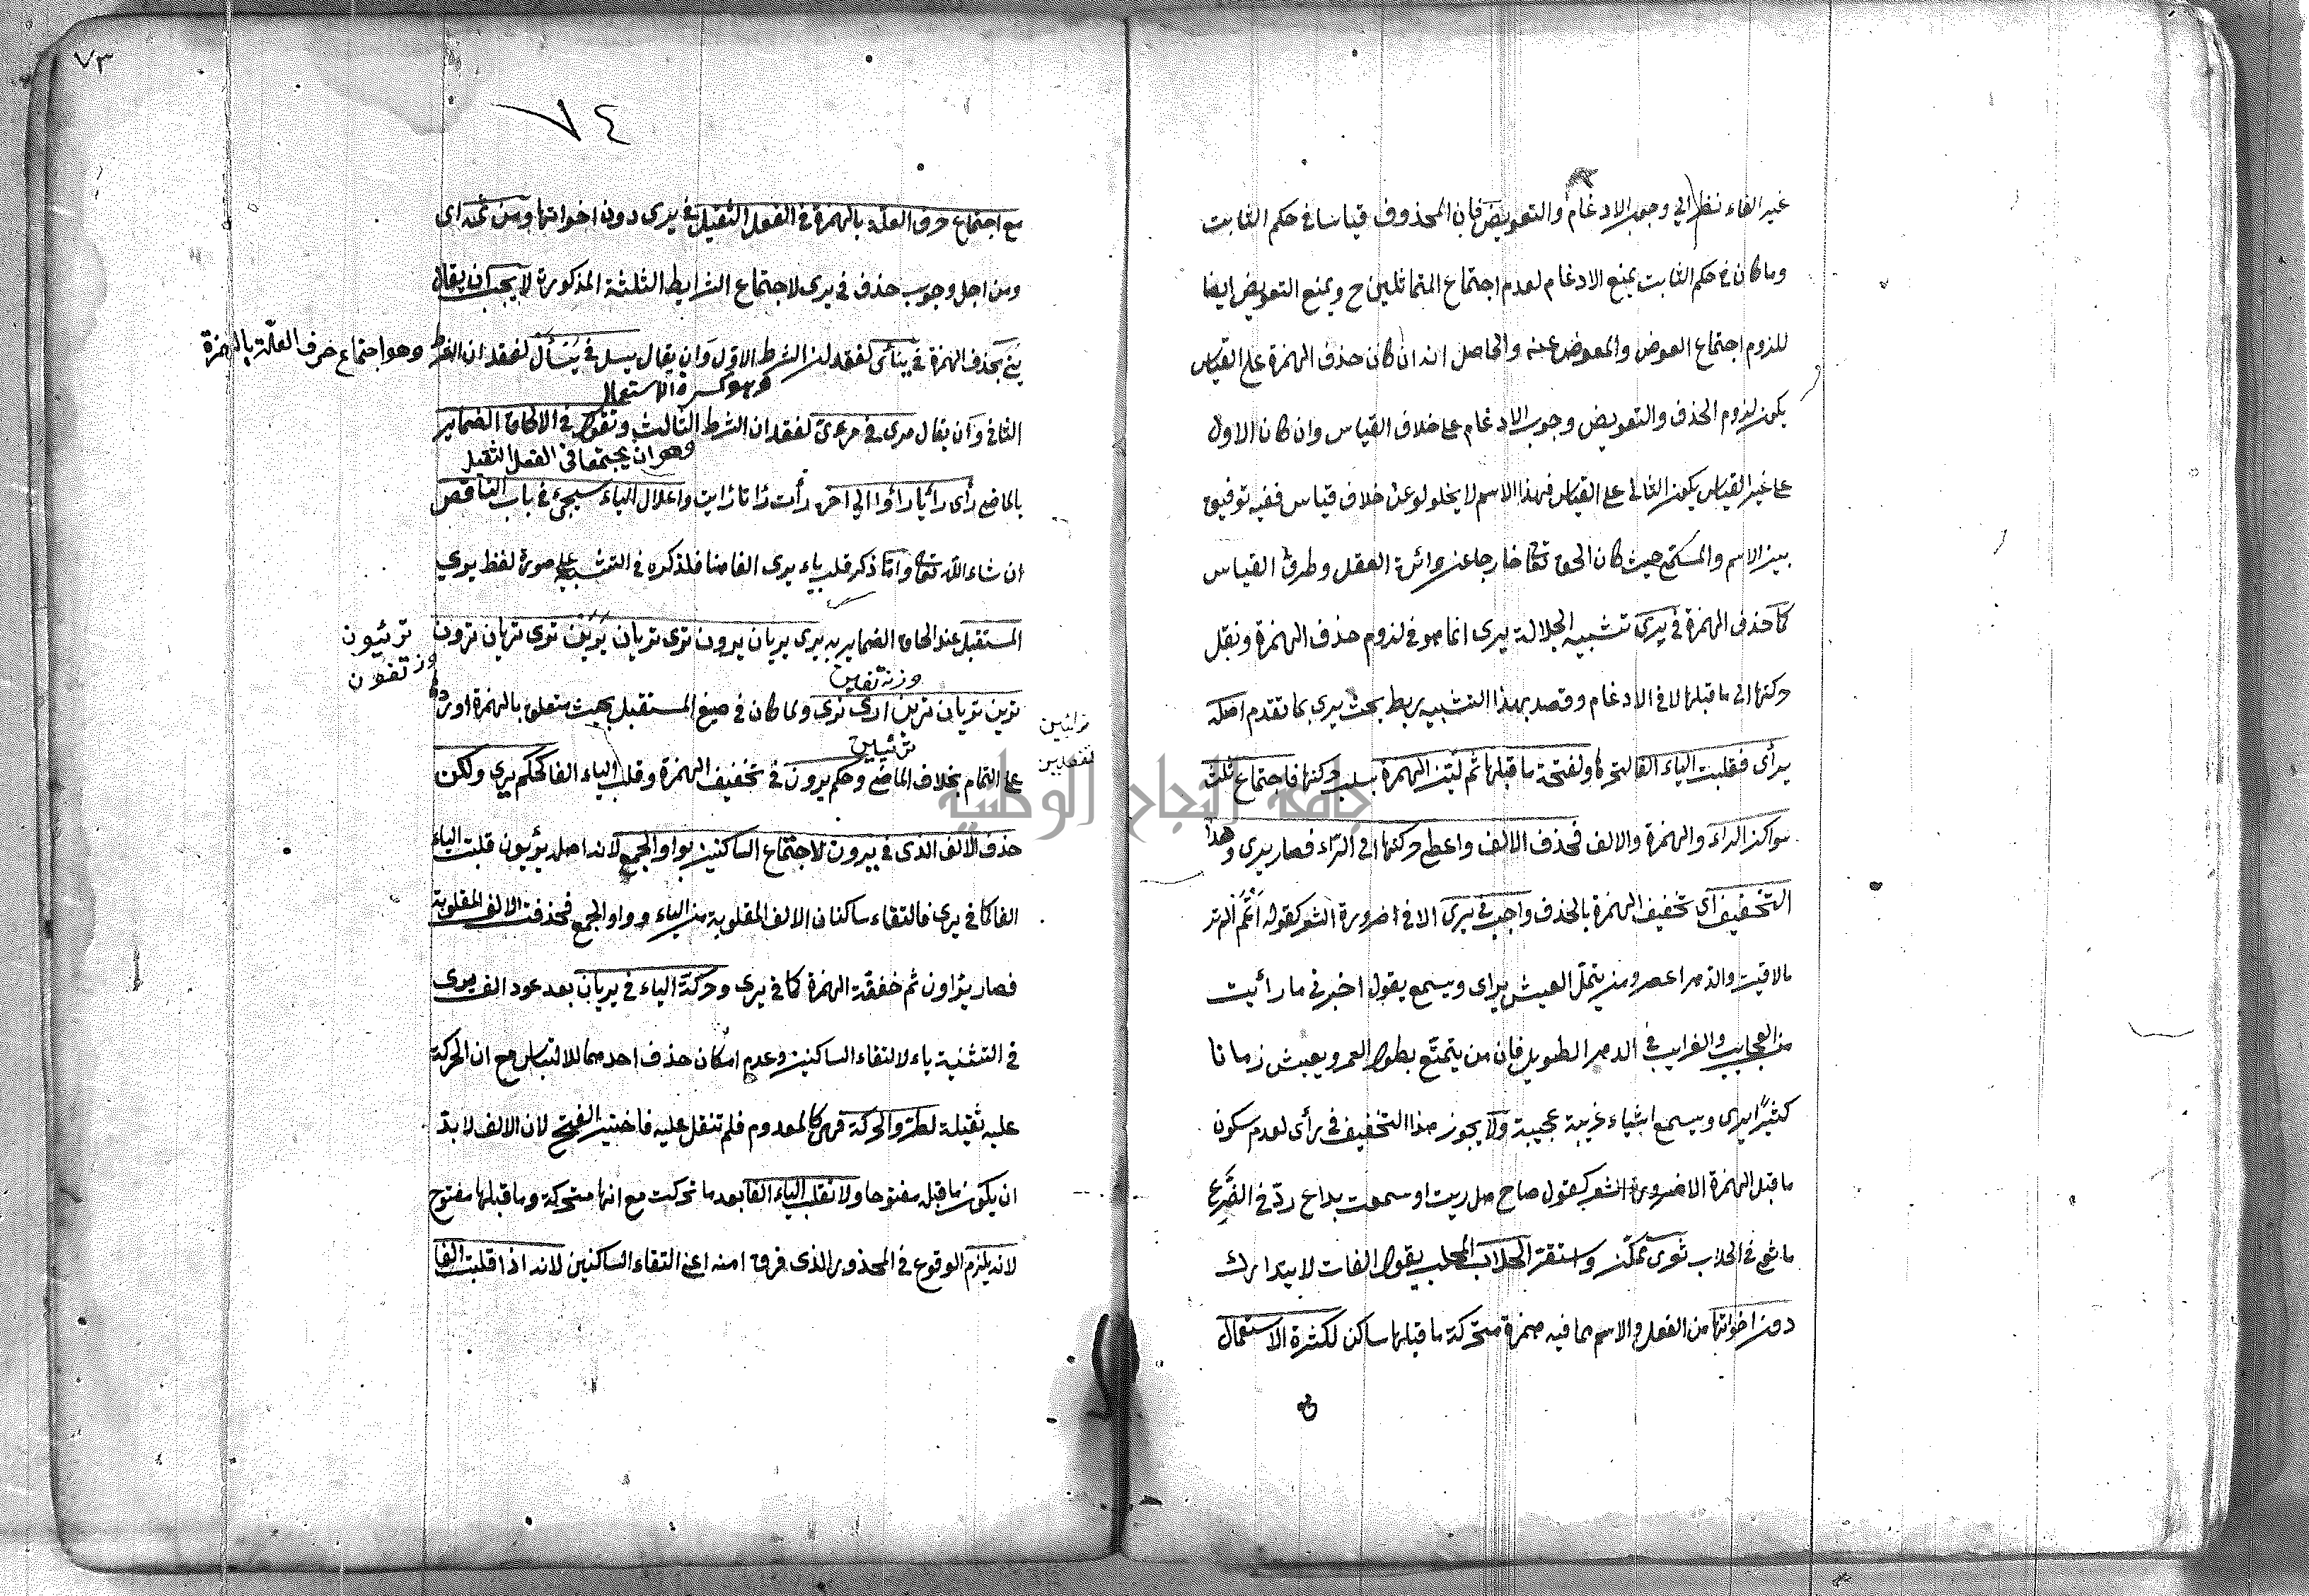 غير الفاء نظرا الي وجوب الادغام والتعويض فان المحذوف قياسا في حكم الثابت
وما كان في حكم الثابت يمنع الادغام لعدم اجتماع المتماثلين ح ويمنع التعويض ايضا
للزوم اجتماع العوض والمعوض عنه والحاصل انه ان كان حذف الهمزة على القياس
يكون لزوم الحذف والتعويض وجوب الادغام على خلاف القياس وان كان الاول
على غير القياس يكون الثاني على القياس فهذا الاسم لا يخلو عن خلاف قياس ففيه توفيق
بين الاسم والمسمى حيث كان الحق تعا خارجا عن دائرة العقل وطرق القياس
كما حذف الهمزة في يرى تشبيه الجلالة يرى انما هو في لزوم حذف الهمزة ونقل
حركتها الى ما قبلها لا في الادغام وقصد بهذا التشبيه ربط بحث يرى بما تقدم اصله
يرأى فقلبت الياء الفا لتحركها ولفتحة ما قبلها ثم لينت الهمزة بسلب حركتها فاجتماع ثلث
سواكن الراء والهمزة والالف فحذف الالف واعطى حركتها الى الراء فصار يرى وهذا
التخفيف اى تخفيف الهمزة بالحذف واجب في يرى الا في ضرورة الشعر كقوله الم تر
ما لاقيت والدهر اعصر ومن يتمل العيش يراى ويسمع يقول اخبرني ما رائيت
من العجايب والغرايب في الدهر الطويل فان من يتمتع بطول العمر ويعيش زمانا
كثيرا يرى ويسمع اشياء غريبة عجيبة ولا يجوز هذا التخفيف في رأى لعدم سكون
ما قبل الهمزة الا ضرورة الشعر كقول صاح هل ريت او سمعت براع رد في الضرع
ما في الحلاب ثوى تمكن واستقر الحلاب المحلب يقول الفات لا يتدارك
دون اخواتها من الفعل والاسم مما فيه همزة متحركة ما قبلها ساكن لكثرة الاستعمال
٧٣
٧٤
مع اجتماع حرف العلة بالهمزة في الفعل الثقيل في يرى دون اخواتها ومن ثمه اى
ومن اجل وجوب حذف في يرى لاجتماع الشرايط الثلثة المذكورة لا يجب ان يقال
ينى بحذف الهمزة في ينأى لفقد الشرط الاول وان يقال يسل في يسأل لفقدان الشرط وهو اجتماع حرف العلة بالهمزة
وهو كثرة الاستعمال
الثاني وان يقال مرى في مرءى لفقدان الشرط الثالث وتقول في الالحاق الضماير
وهو ان يجتمعا في الفعل الثقيل
بالماضي رأى رأيا رأوا الي اخره رأت رأتا رأيت واعلال الياء سيجئ في باب الناقص
ان شاء الله تعا وانما ذكر قلب ياء يرى الفا هنا فلذكره في التشبيه على صورة لفظ يرى
المستقبل عند الحاق الضماير به يرى يريان يرون ترى تريان يرين ترى تريان ترون
ترئيون
وزنه تفون
وزنه تفلين
ترين تريان ترين ارى نرى ولما كان في صيغ المستقبل بحث متعلق بالهمزة اورد
ترئيين
على التمام بخلاف الماضي وحكم يرون في تخفيف الهمزة وقلب الياء الفا كحكم يرى ولكن
حذف الالف الذى في يرون لاجتماع الساكنين بواو الجمع لانه اصل يرئيون قلبت الياء
الفا كما في يرى فالتقاء ساكنان الالف المقلوبة من الياء وواو الجمع فحذفت الالف المقلوبة
فصار يرأون ثم خففت الهمزة كما في يرى وحركة الياء في يريان بعد عود الف يرى
في التثنية ياء لالتقاء الساكنين وعدم امكان حذف احدهما للالتباس مع ان الحركة
عليه ثقيلة لطرو الحركة فهى كالمعدوم فلم تنقل عليه فاختير الفتح لان الالف لا بد
ان يكون ما قبله مفتوحا ولا تقلب الياء الفا بعد ما تحركت مع انها متحركة وما قبلها مفتوح
لانه يلزم الوقوع في المحذور الذى فر منه اعنى التقاء الساكنين لانه اذا قلبت الفا
جامعة النجاح الوطنية